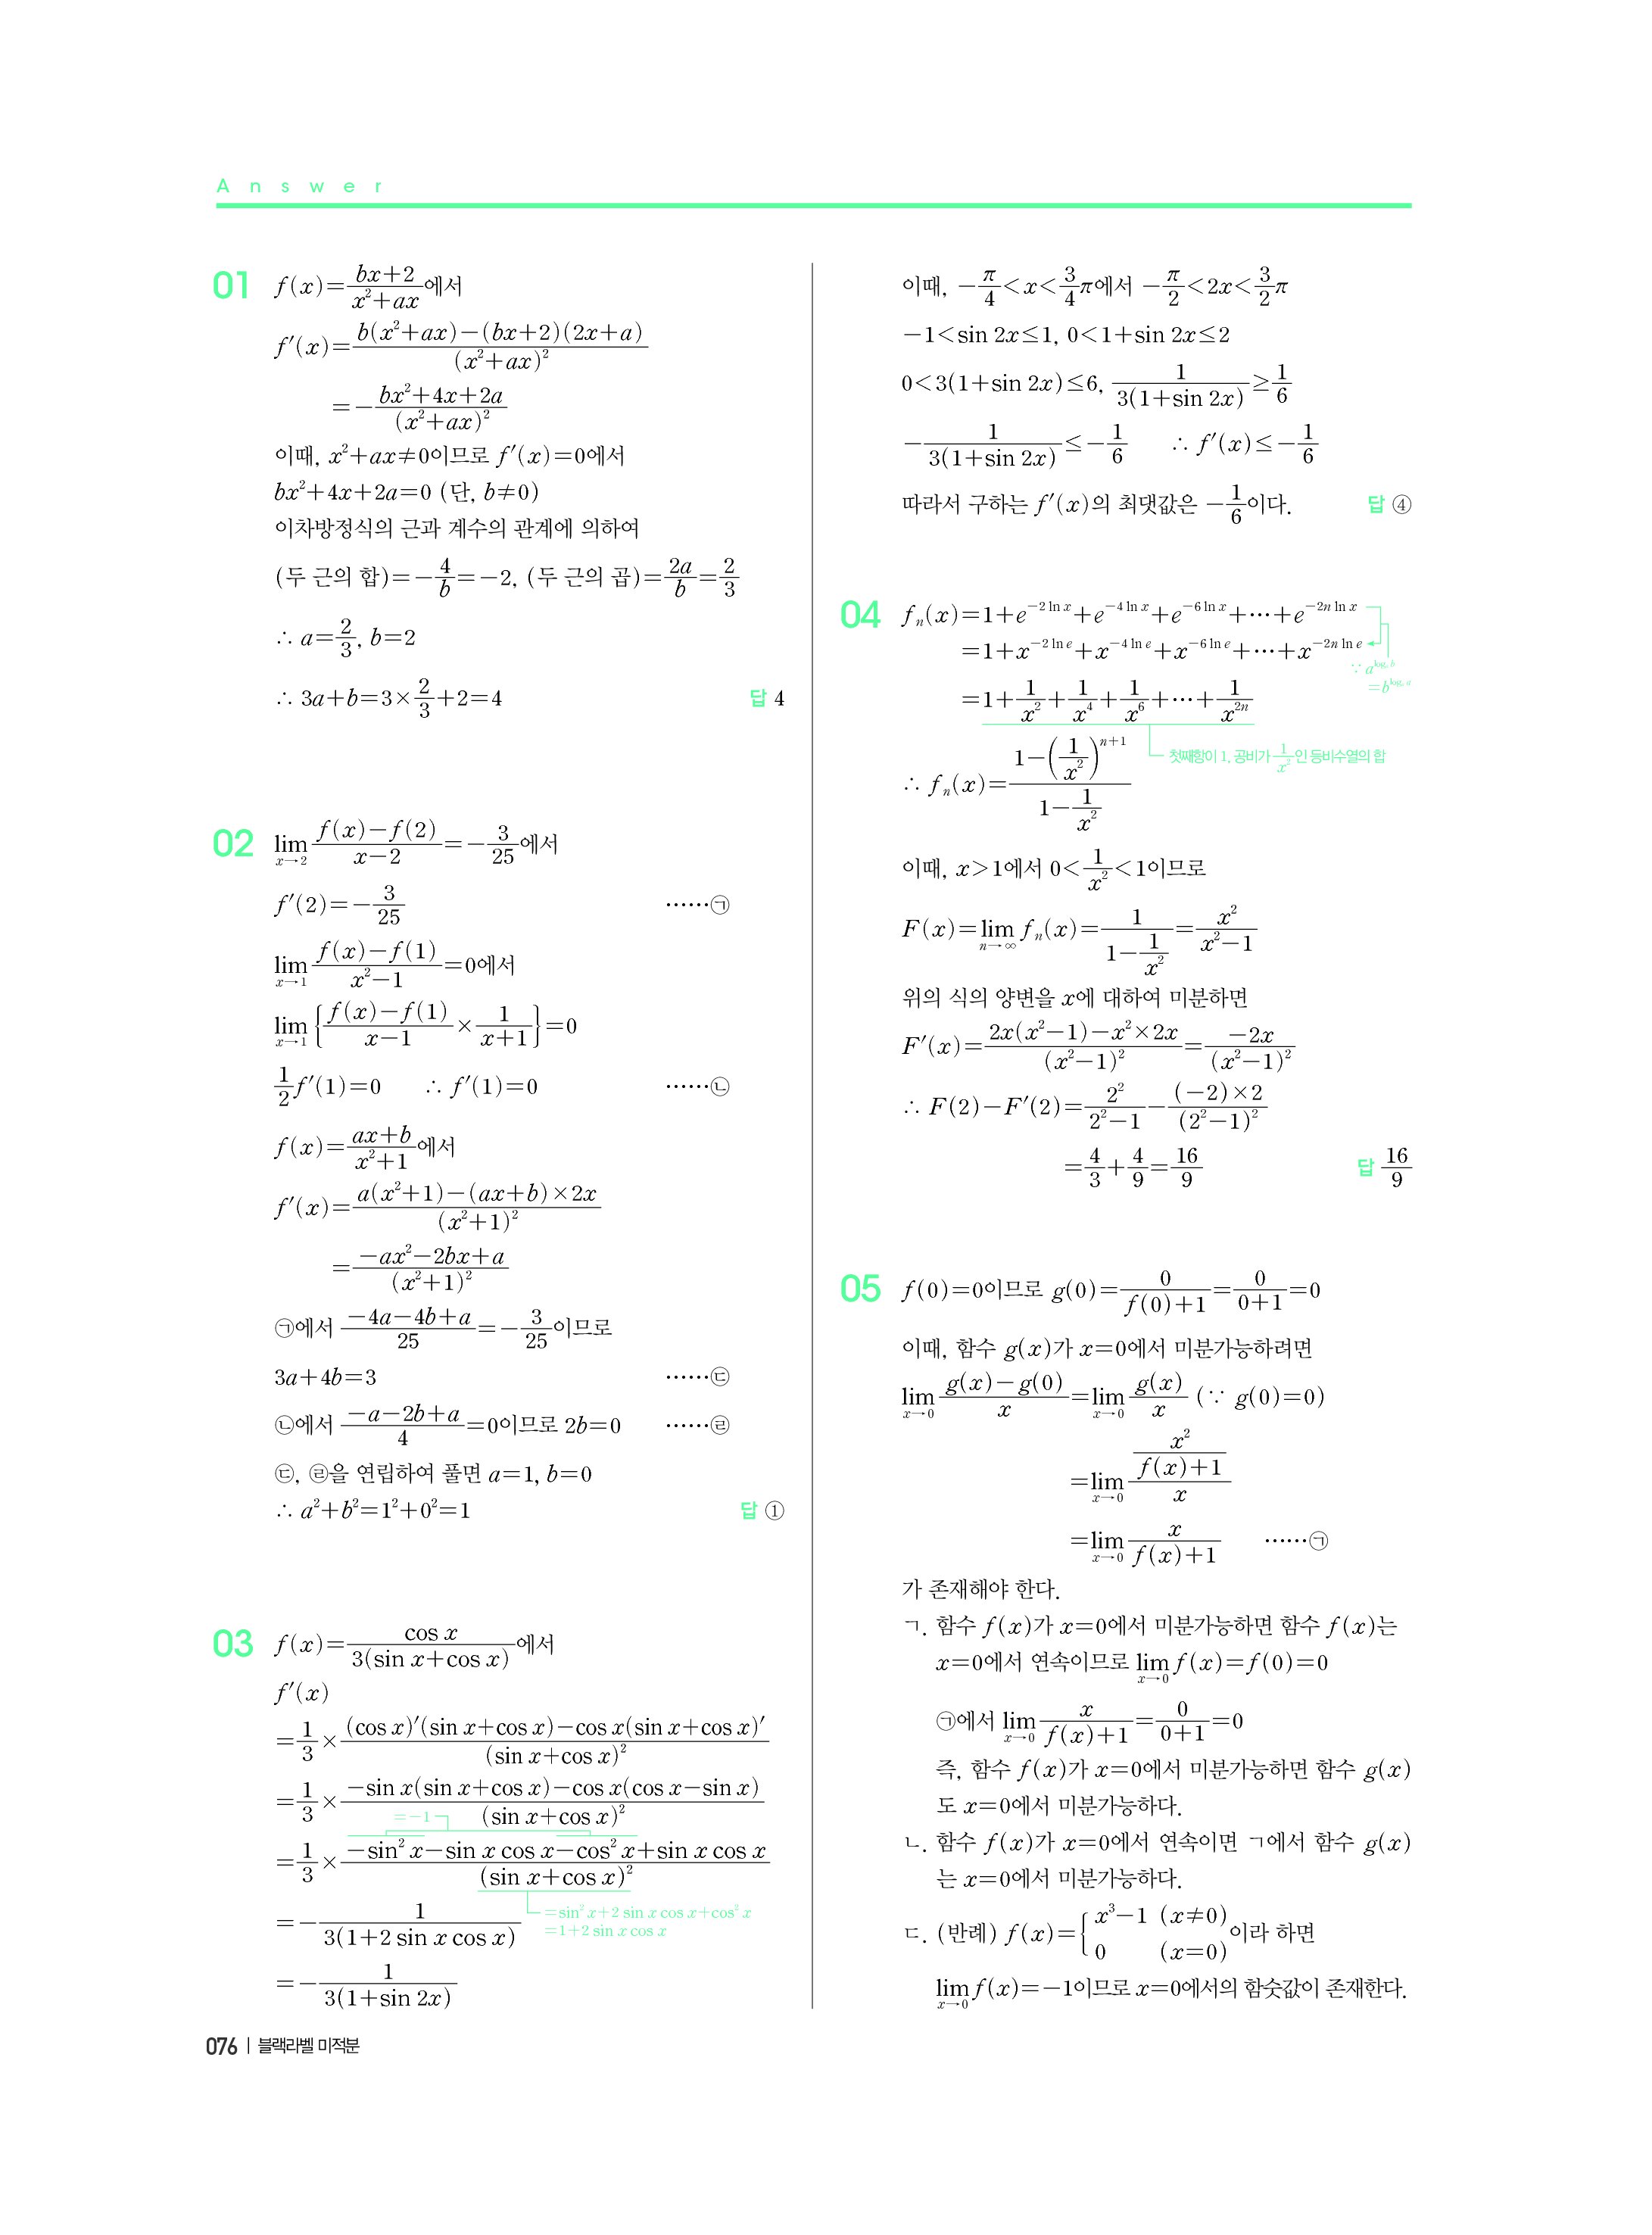 Answer
01 f(x)=\frac{bx+2}{x^2+ax}에서
f'(x)=\frac{b(x^2+ax)-(bx+2)(2x+a)}{(x^2+ax)^2}
=-\frac{bx^2+4x+2a}{(x^2+ax)^2}
이때, x^2+ax≠0이므로 f'(x)=0에서
bx^2+4x+2a=0 (단, b≠0)
이차방정식의 근과 계수의 관계에 의하여
(두 근의 합)=-\frac{4}{b}=-2, (두 근의 곱)=\frac{2a}{b}=\frac{2}{3}
∴ a=\frac{2}{3}, b=2
∴ 3a+b=3×\frac{2}{3}+2=4 답 4
02 \lim_{x→2}\frac{f(x)-f(2)}{x-2}=-\frac{3}{25}에서
f'(2)=-\frac{3}{25} ……㉠
\lim_{x→1}\frac{f(x)-f(1)}{x^2-1}=0에서
\lim_{x→1}{\frac{f(x)-f(1)}{x-1}×\frac{1}{x+1}}=0
\frac{1}{2}f'(1)=0 ∴ f'(1)=0 ……㉡
f(x)=\frac{ax+b}{x^2+1}에서
f'(x)=\frac{a(x^2+1)-(ax+b)×2x}{(x^2+1)^2}
=\frac{-ax^2-2bx+a}{(x^2+1)^2}
㉠에서 \frac{-4a-4b+a}{25}=-\frac{3}{25}이므로
3a+4b=3 ……㉢
㉡에서 \frac{-a-2b+a}{4}=0이므로 2b=0 ……㉣
㉢, ㉣을 연립하여 풀면 a=1, b=0
∴ a^2+b^2=1^2+0^2=1 답 ①
03 f(x)=\frac{cos x}{3(sin x+cos x)}에서
f'(x)
=\frac{1}{3}×\frac{(cos x)'(sin x+cos x)-cos x(sin x+cos x)'}{(sin x+cos x)^2}
=\frac{1}{3}×\frac{-sin x(sin x+cos x)-cos x(cos x-sin x)}{(sin x+cos x)^2}
=-1
=\frac{1}{3}×\frac{-sin^2 x-sin x cos x-cos^2 x+sin x cos x}{(sin x+cos x)^2}
=sin^2 x+2 sin x cos x+cos^2 x
=1+2 sin x cos x
=-\frac{1}{3(1+2 sin x cos x)}
=-\frac{1}{3(1+sin 2x)}
이때, -\frac{π}{4}<x<\frac{3}{4}π에서 -\frac{π}{2}<2x<\frac{3}{2}π
-1<sin 2x≤1, 0<1+sin 2x≤2
0<3(1+sin 2x)≤6, \frac{1}{3(1+sin 2x)}≥\frac{1}{6}
-\frac{1}{3(1+sin 2x)}≤-\frac{1}{6} ∴ f'(x)≤-\frac{1}{6}
따라서 구하는 f'(x)의 최댓값은 -\frac{1}{6}이다. 답 ④
04 f_n(x)=1+e^{-2 ln x}+e^{-4 ln x}+e^{-6 ln x}+⋯+e^{-2n ln x}
=1+x^{-2 ln e}+x^{-4 ln e}+x^{-6 ln e}+⋯+x^{-2n ln e}
∵ a^{log_c b}
=b^{log_c a}
=1+\frac{1}{x^2}+\frac{1}{x^4}+\frac{1}{x^6}+⋯+\frac{1}{x^{2n}}
첫째항이 1, 공비가 \frac{1}{x^2}인 등비수열의 합
∴ f_n(x)=\frac{1-(\frac{1}{x^2})^{n+1}}{1-\frac{1}{x^2}}
이때, x>1에서 0<\frac{1}{x^2}<1이므로
F(x)=\lim_{n→∞} f_n(x)=\frac{1}{1-\frac{1}{x^2}}=\frac{x^2}{x^2-1}
위의 식의 양변을 x에 대하여 미분하면
F'(x)=\frac{2x(x^2-1)-x^2×2x}{(x^2-1)^2}=\frac{-2x}{(x^2-1)^2}
∴ F(2)-F'(2)=\frac{2^2}{2^2-1}-\frac{(-2)×2}{(2^2-1)^2}
=\frac{4}{3}+\frac{4}{9}=\frac{16}{9} 답 \frac{16}{9}
05 f(0)=0이므로 g(0)=\frac{0}{f(0)+1}=\frac{0}{0+1}=0
이때, 함수 g(x)가 x=0에서 미분가능하려면
\lim_{x→0}\frac{g(x)-g(0)}{x}=\lim_{x→0}\frac{g(x)}{x} (∵ g(0)=0)
=\lim_{x→0}\frac{\frac{x^2}{f(x)+1}}{x}
=\lim_{x→0}\frac{x}{f(x)+1} ……㉠
가 존재해야 한다.
ㄱ. 함수 f(x)가 x=0에서 미분가능하면 함수 f(x)는
x=0에서 연속이므로 \lim_{x→0} f(x)=f(0)=0
㉠에서 \lim_{x→0}\frac{x}{f(x)+1}=\frac{0}{0+1}=0
즉, 함수 f(x)가 x=0에서 미분가능하면 함수 g(x)
도 x=0에서 미분가능하다.
ㄴ. 함수 f(x)가 x=0에서 연속이면 ㄱ에서 함수 g(x)
는 x=0에서 미분가능하다.
ㄷ. (반례) f(x)={x^3-1 (x≠0)
0 (x=0) 이라 하면
\lim_{x→0} f(x)=-1이므로 x=0에서의 함숫값이 존재한다.
076 | 블랙라벨 미적분